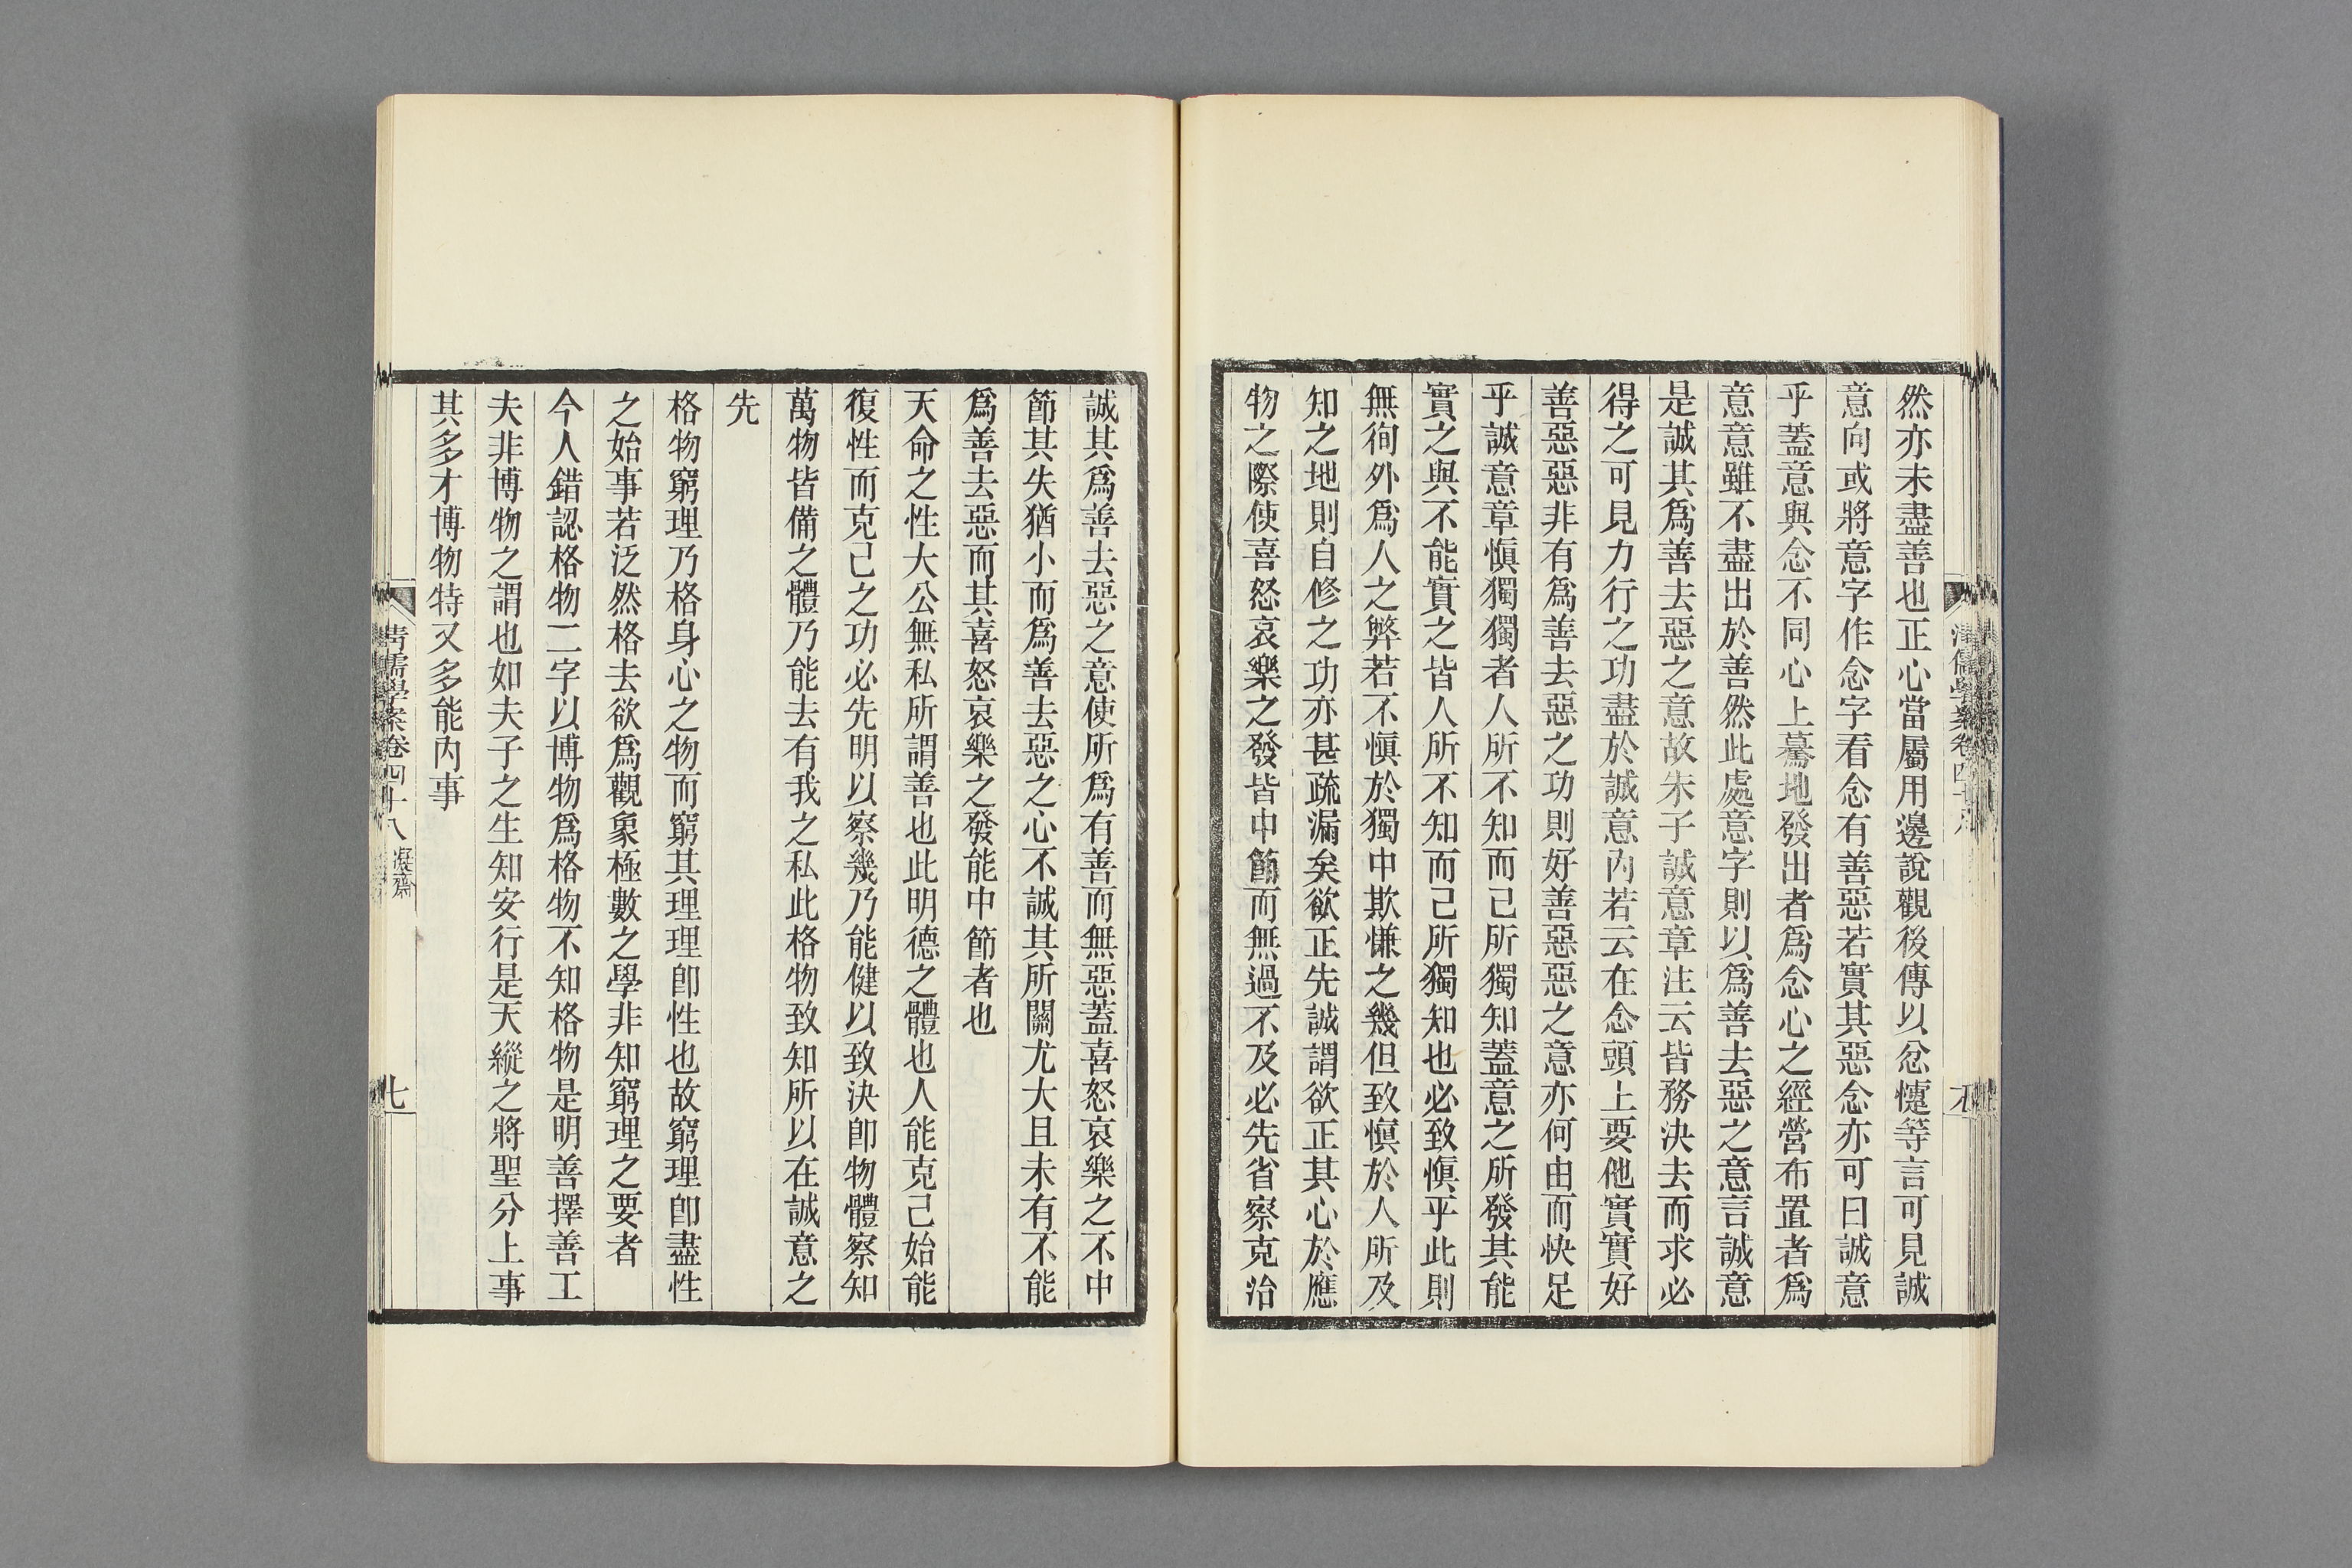 然亦未盡善也正心當屬用邊說觀後傳以忿懥等言可見誠
意向或將意字作念字看念有善惡若實其惡念亦可曰誠意
乎蓋意與念不同心上驀地發出者爲念心之經營布置者爲
意意雖不盡出於善然此處意字則以爲善去惡之意言誠意
是誠其爲善去惡之意故朱子誠意章注云皆務決去而求必
得之可見力行之功盡於誠意內若云在念頭上要他實實好
善惡惡非有爲善去惡之功則好善惡惡之意亦何由而快足
乎誠意章愼獨獨者人所不知而己所獨知蓋意之所發其能
實之與不能實之皆人所不知而己所獨知也必致愼乎此則
無徇外爲人之弊若不愼於獨中欺慊之幾但致愼於人所及
知之地則自修之功亦甚疏漏矣欲正先誠謂欲正其心於應
物之際使喜怒哀樂之發皆中節而無過不及必先省察克治
誠其爲善去惡之意使所爲有善而無惡蓋喜怒哀樂之不中
節其失猶小而爲善去惡之心不誠其所關尤大且未有不能
爲善去惡而其喜怒哀樂之發能中節者也
天命之性大公無私所謂善也此明德之體也人能克己始能
復性而克己之功必先明以察幾乃能健以致決卽物體察知
萬物皆備之體乃能去有我之私此格物致知所以在誠意之
先
格物窮理乃格身心之物而窮其理理卽性也故窮理卽盡性
之始事若泛然格去欲爲觀象極數之學非知窮理之要者
今人錯認格物二字以博物爲格物不知格物是明善擇善工
夫非博物之謂也如夫子之生知安行是天縱之將聖分上事
其多才博物特又多能內事
清儒學案卷四十八 凝齋
七